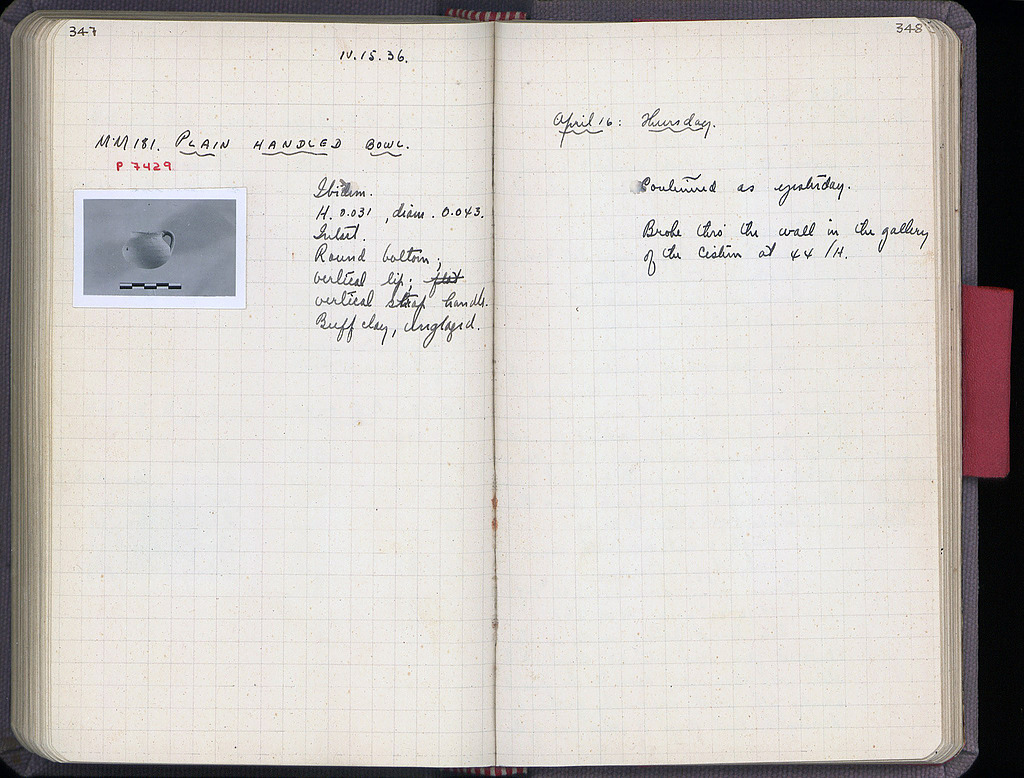 347
IV.15.36.
MM 181. PLAIN HANDLED BOWL.
P 7429
Ibidem.
H. 0.031, diam. 0.043.
Intact.
Round bottom;
vertical lip; flat
vertical strap handle.
Buff clay, unglazed.
348
April 16: Thursday.
Continued as yesterday.
Broke thro' the wall in the gallery
of the cistern at 44/H.